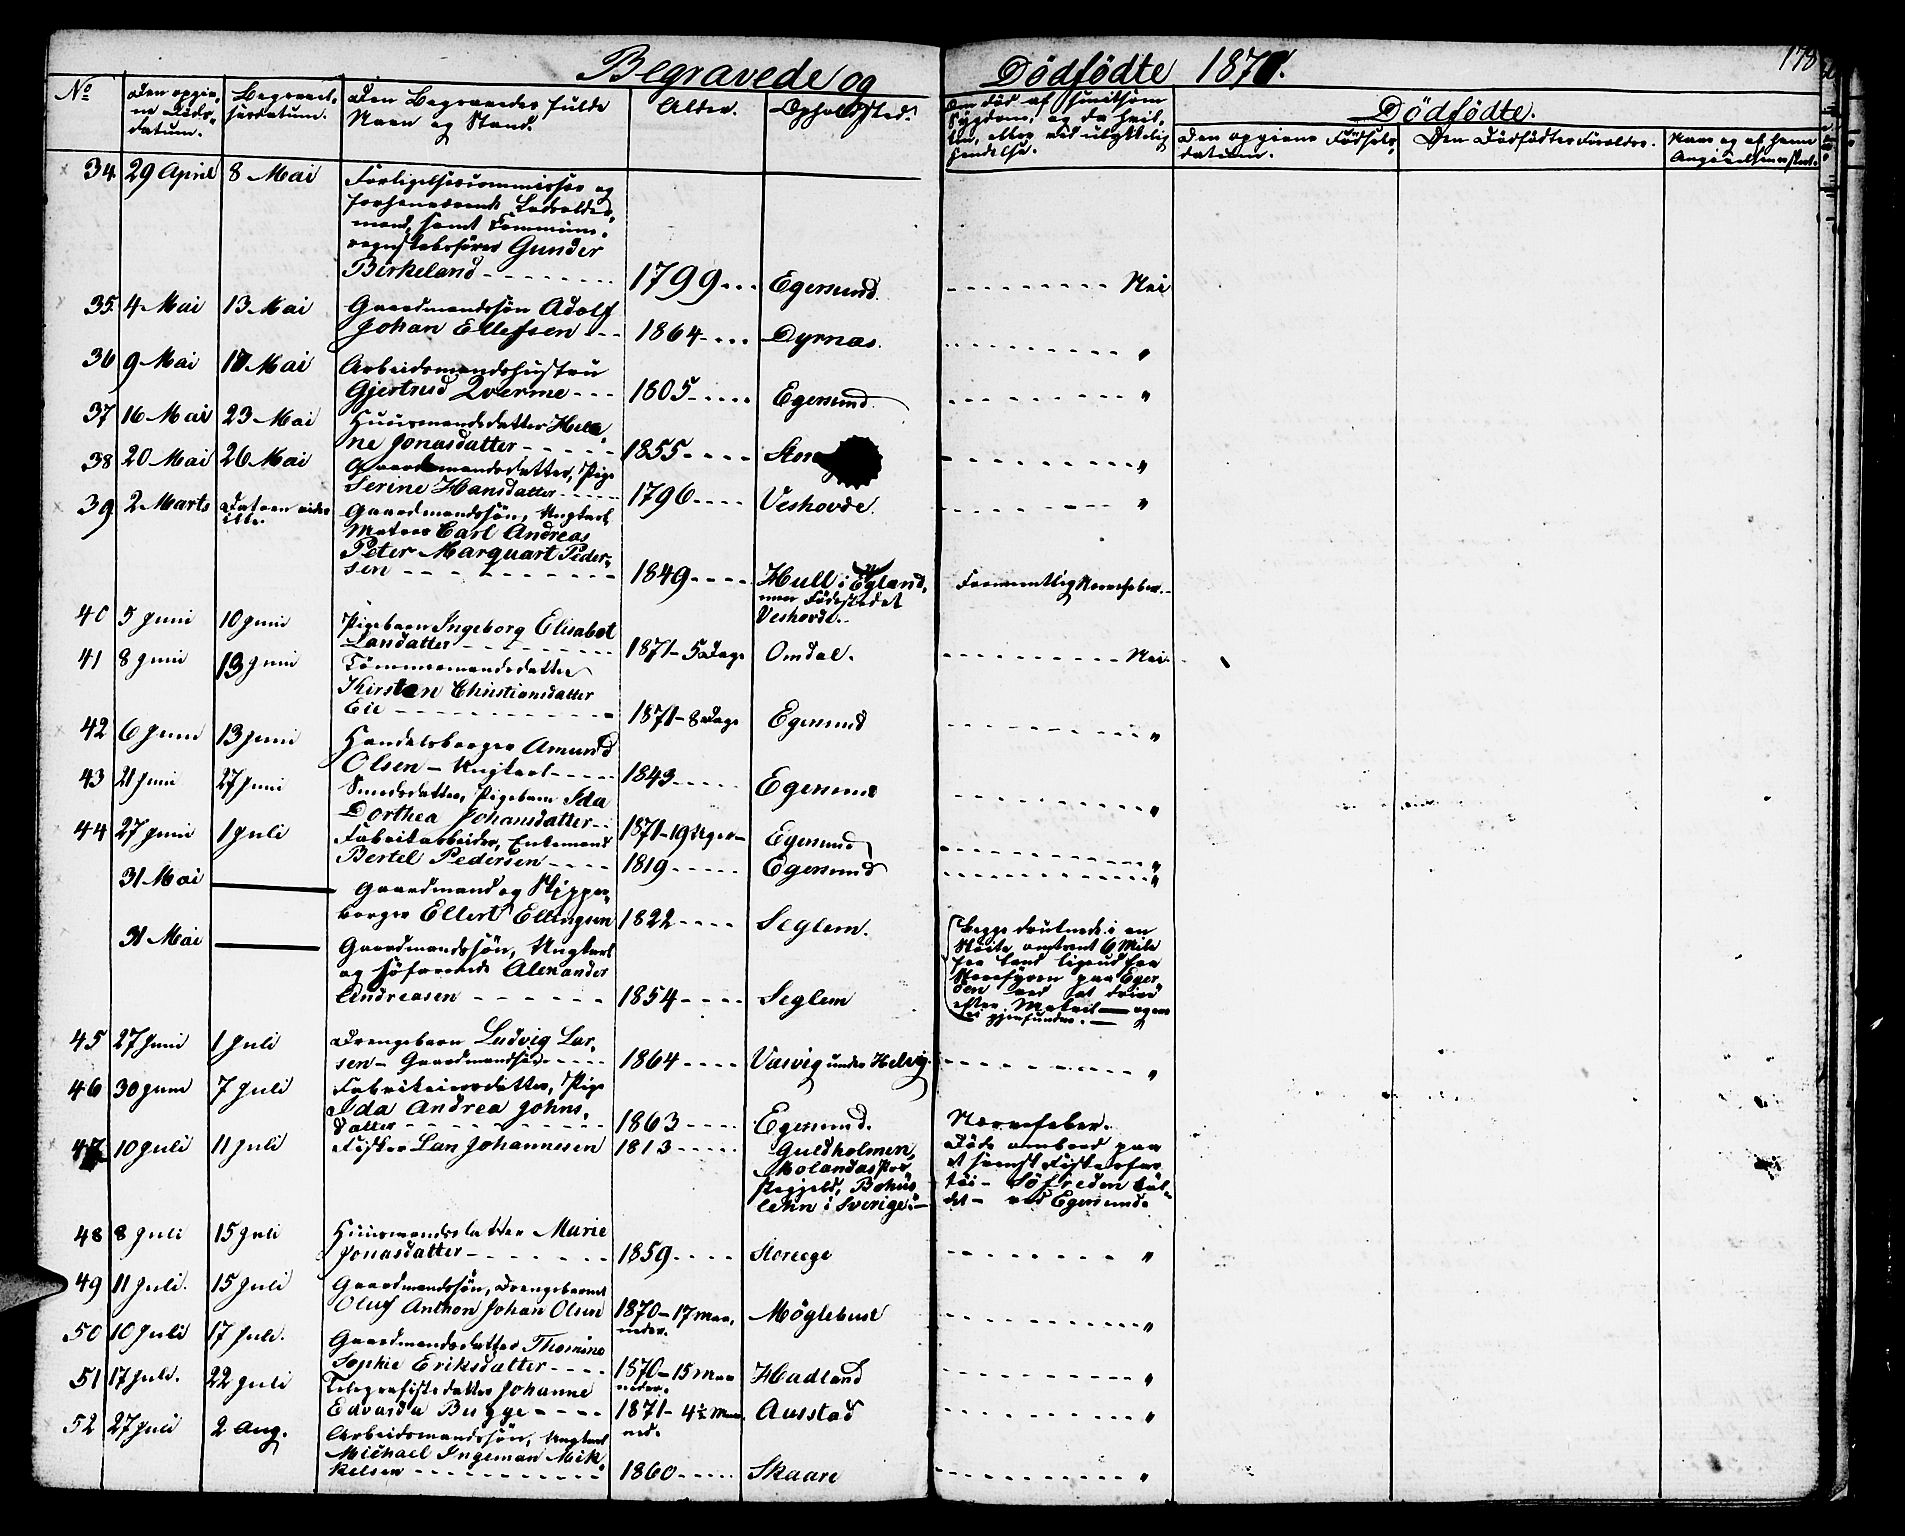 Begravede og Dödfödte 1871.
178
No
Den opgivne Döds-datum.
Begravelsesdatum.
Den Begravedes fulde Navn og Stand.
Alder.
Opholdssted.
Om död af smitsom Sygdom, og da hvilken, eller ved ulykkelig Hendelse.
Dödfödte.
Den opgivne Födsels-datum.
Den Dödfödtes Forældre.
34 29 April 8 Mai Forligelsescommissær og
forhenværende Lodsolder-
mand, samt Commune-
regnskabsförer Gunder
Birkeland 1799 Egersund. Nei
35. 4 Mai 13 Mai Gaardmandssön Adolf
Johan Ellefsen 1864 Dyrnæs. "
36 9 Mai 17 Mai Arbeidsmandshustru
Gjertrud Qverme 1805 Egersund. "
37 16 Mai 23 Mai Huusmandsdatter Hele-
ne Jonasdatter 1855 "
38 20 Mai 26 Mai Gaardmandsdatter, Pige
Serine Hansdatter 1796 Veshovde. "
39 2 Marts Gaardmandssön, Ungkarl
Matros Carl Andreas
Peter Marquart Peder-
sen 1849 Hull i England,
men Födestedet
Veshovde. Formentlig Nervefeber.
40 5 Juni 10 Juni Pigebarn Ingeborg Elisabet
Larsdatter 1871 - 5 Dage Omdal. Nei.
41 8 Juni 13 Juni Tömmermandsdatter
Kirsten Christiansdatter
Eie 1871 - 8 Dage Egersund "
42 6 Juni 13 Juni Handelsborger Amund
Olsen - Ungkarl 1843 Egersund "
43 21 Juni 27 Juni Smedsdatter, Pigebarn Ida
Dorthea Johansdatter 1871 - 19 Uger Egersund "
44 27 Juni 1 Juli Fabrikarbeider, Enkemand
Bertel Pedersen 1819 Egersund "
31 Mai Gaardmand og Skipper-
borger Ellert Ellingsen 1822 Seglem.
31 Mai Gaardmandssön, Ungkarl
og söfarende Alexander
Andreasen 1854 Seglem
Begge druknede i en
Sköite omtrent 6 Mile
fra Land ligeud fra
paa Eger-
öen ved at drive
efter Makrel - og ere
ei gjenfundne.
45 27 Juni 1 Juli Drengebarn Ludvig Lar-
sen - Gaardmandssön 1864 Vasvig under Helvig. "
46 30 Juni 7 Juli Pige
Ida Andrea Johns-
datter 1863 Egersund. Nervefeber.
47 10 Juli 11 Juli Fisker Lars Johannesen 1813 Guldholmen,
Molandas Præ-
stegjeld, Bohus
Lehn i Sverige.
Döde ombord paa
et svensk Fiskerfar-
töi - Söfreden kal-
det - ved Egersund.
48 8 Juli 15 Juli Huusmandsdatter Marie
Jonasdatter 1859 Storeege "
49 11 Juli. 15 Juli Gaardmandssön, Drengebarnet
Oluf Anthon Johan Olsen 1870 - 17 Maa-
neder. Möglebust "
50 10 Juli 17 Juli. Gaardmandsdatter Thomine
Sophie Eriksdatter 1870 - 15 Maa-
neder. Hadland "
51 17 Juli. 22 Juli Telegrafistsdatter Johanne
Edvarda Bugge 1871 - 4½ Maa-
ned. Aarstad "
52 27 Juli 2 Aug. Arbeidsmandssön, Ungkarl
Michael Ingeman Mik-
kelsen 1860 Skaare "